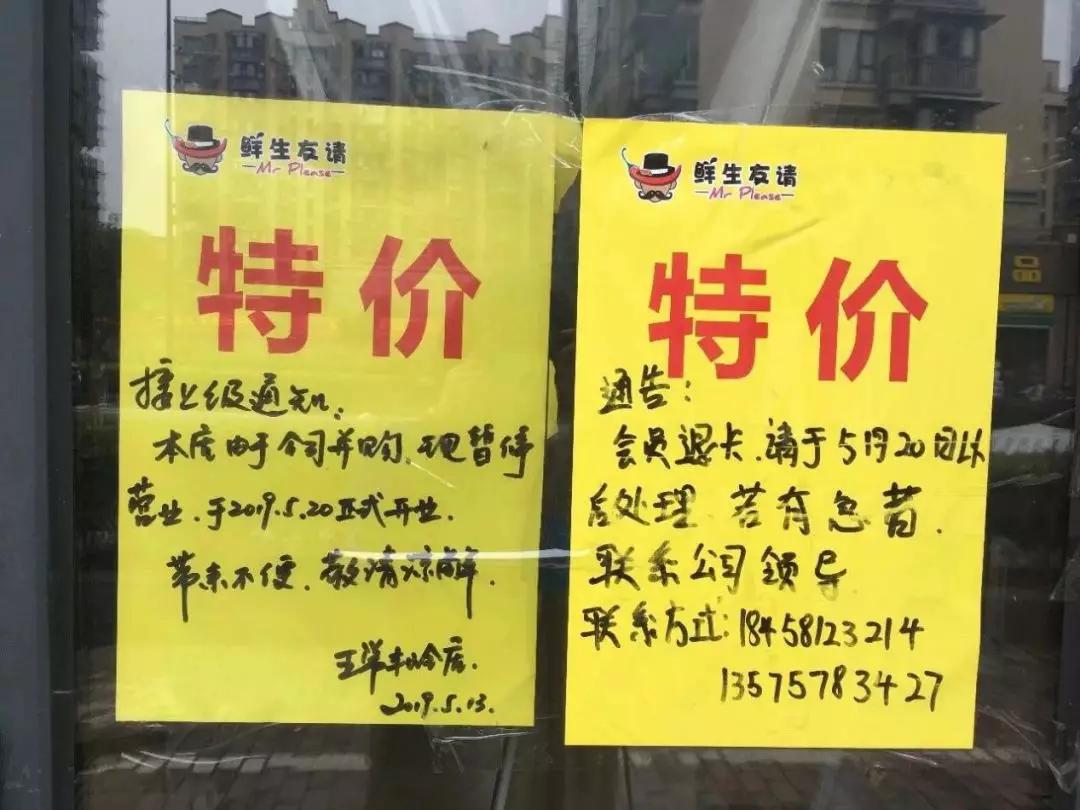 鲜生友请
Mr Please
特价
接上级通知:
本店由于公司并购,现暂停
营业,于2019.5.20正式开业.
带来不便,敬请凉解.
店.
2019.5.13.
鲜生友请
Mr Please
特价
通告:
会员退卡,请于5月20日以
后处理,若有急者,
联系公司领导
联系方式:18458123214
13575783427